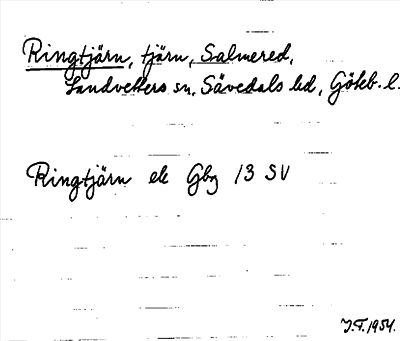 Ringtjärn, tjärn, Salmered,
Landvetters sn, Sävedals hd, Göteb. l.
Ringtjärn ek Gbg 13 SV
J.F. 1954.